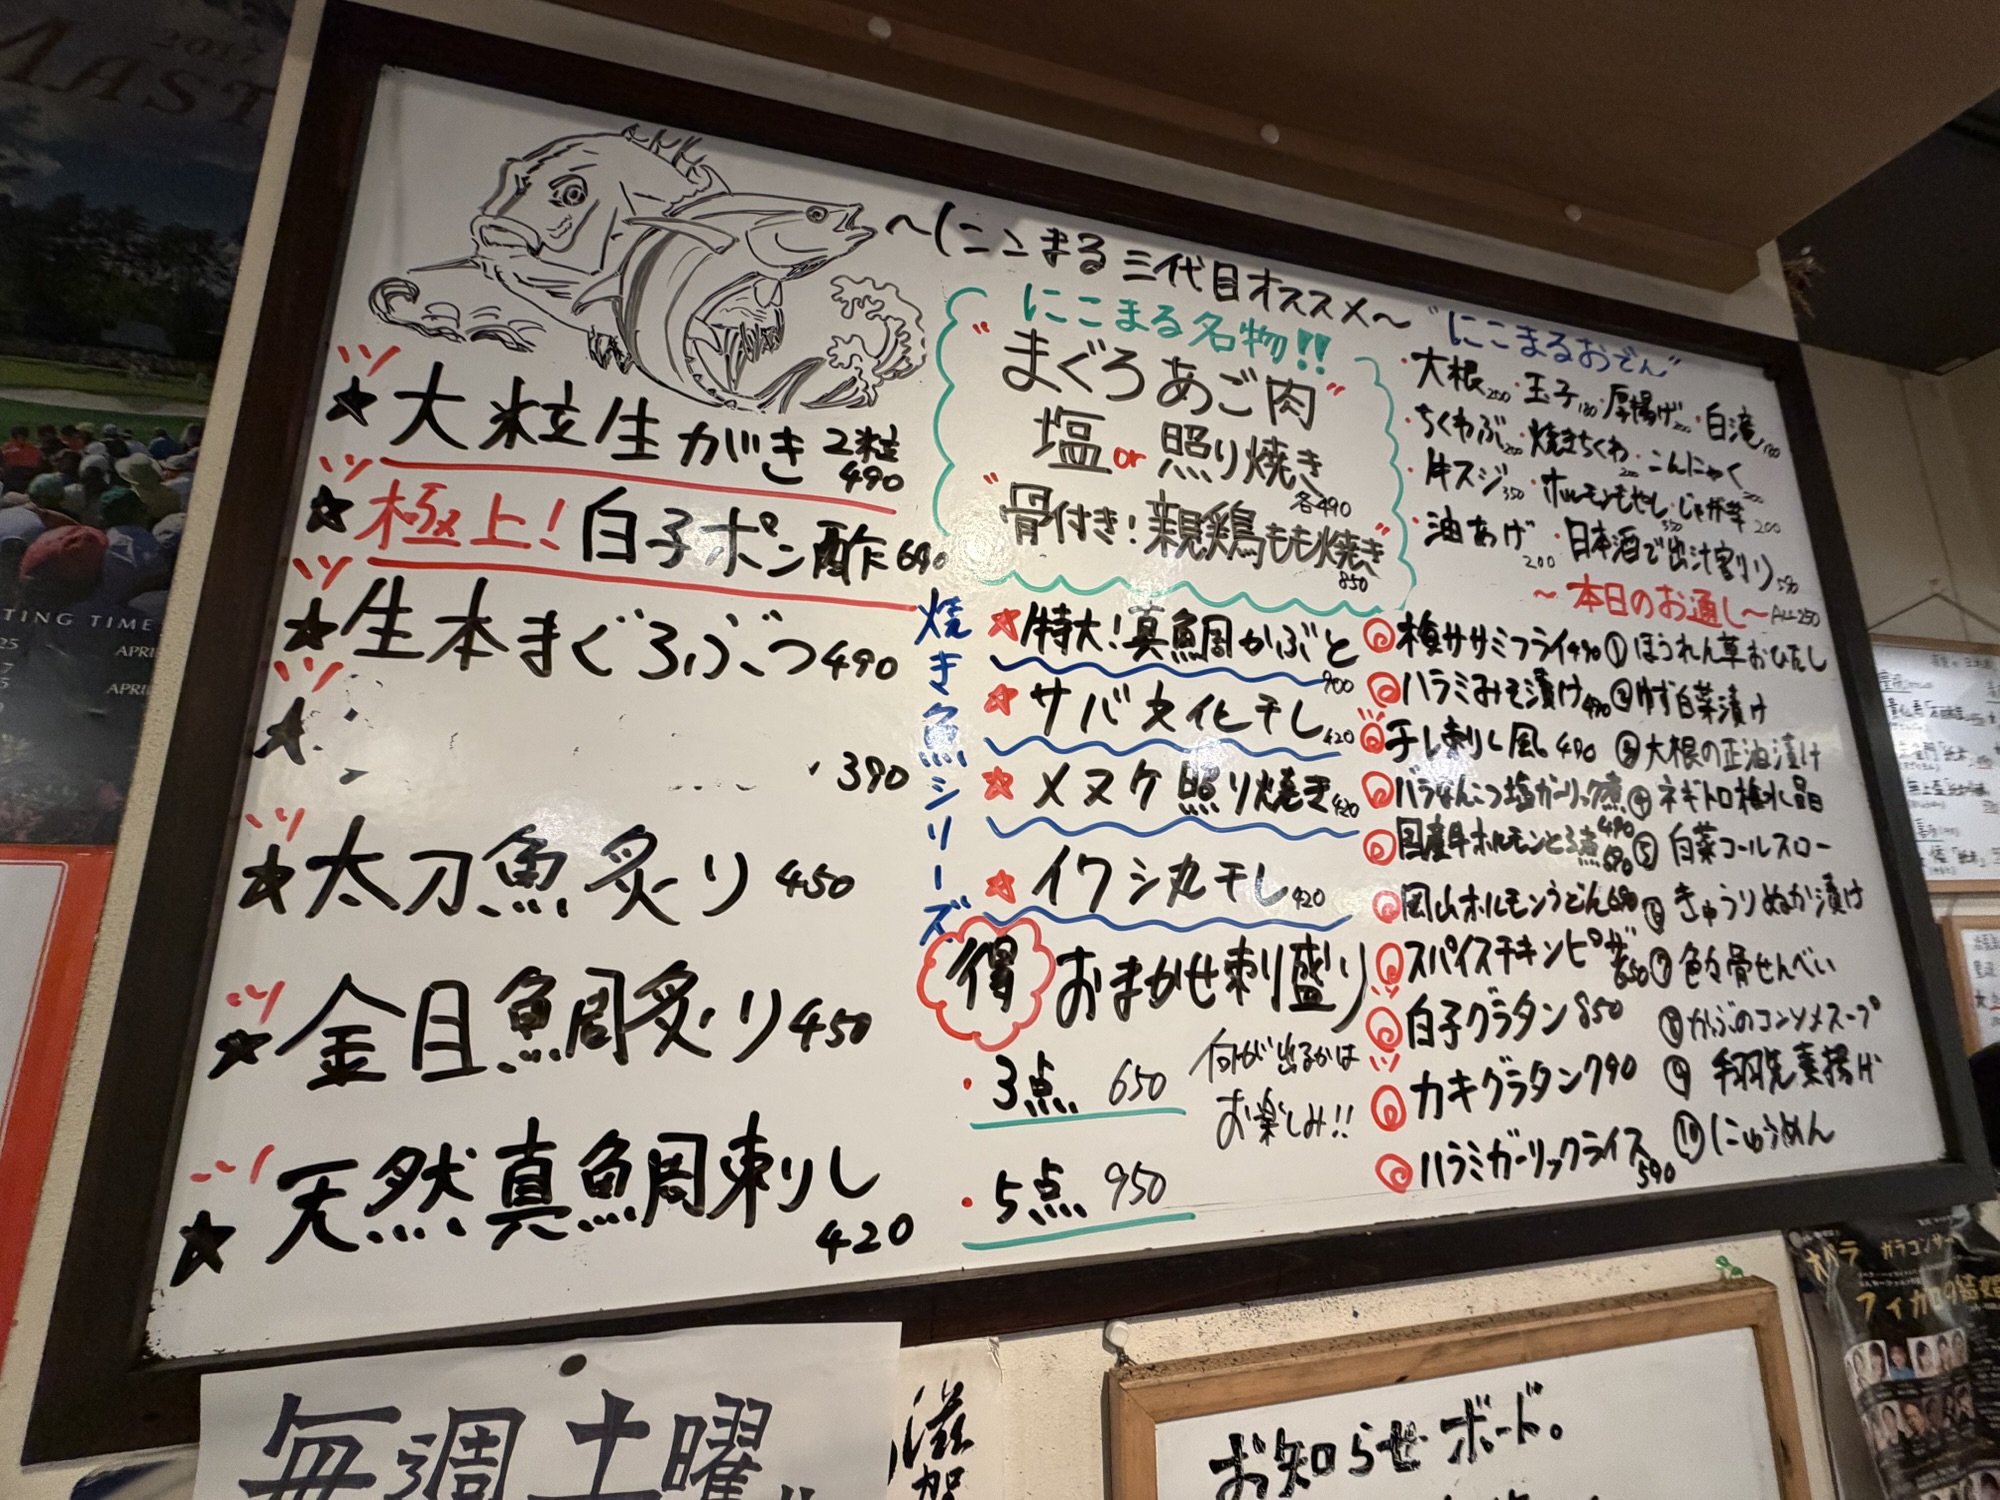 2017
MAST
TING TIME
APRI
APRIL
～にこまる三代目オススメ～
★大粒生がき 2粒 490
★極上!白子ポン酢 690
★生本まぐろぶつ 490
★ 390
★太刀魚炙り 450
★金目鯛炙り 450
★天然真鯛刺し 420
にこまる名物!!
"まぐろあご肉"
塩or照り焼き
各490
"骨付き!親鶏もも焼き"
850
焼き魚シリーズ
★特大!真鯛かぶと 900
★サバ文化干し 420
★メヌケ照り焼き 420
★イワシ丸干し 420
得 おまかせ刺り盛り
・3点 650
・5点 950
何が出るかは
お楽しみ!!
"にこまるおでん"
・大根200・玉子180・厚揚げ200・白滝180
・ちくわぶ200・焼きちくわ200・こんにゃく200
・牛スジ350・ホルモンもやし350・じゃが芋200
・油あげ200・日本酒で出汁割り590
梅ササミフライ490
ハラミみそ漬け490
干し刺し風 490
バラなんこつ塩ガーリック煮 490
国産牛ホルモンとろ煮 690
岡山ホルモンうどん690
スパイスチキンピザ 650
白子グラタン850
カキグラタン790
ハラミガーリックライス 590
～本日のお通し～ALL250
①ほうれん草おひたし
②ゆず白菜漬け
③大根の正油漬け
④ネギトロ梅水晶
⑤白菜コールスロー
⑥きゅうりぬか漬け
⑦色々骨せんべい
⑧かぶのコンソメスープ
⑨手羽先素揚げ
⑩にゅうめん
毎週土曜
滋賀
お知らせボード。
オペラ ガラコンサー
フィガロの結婚